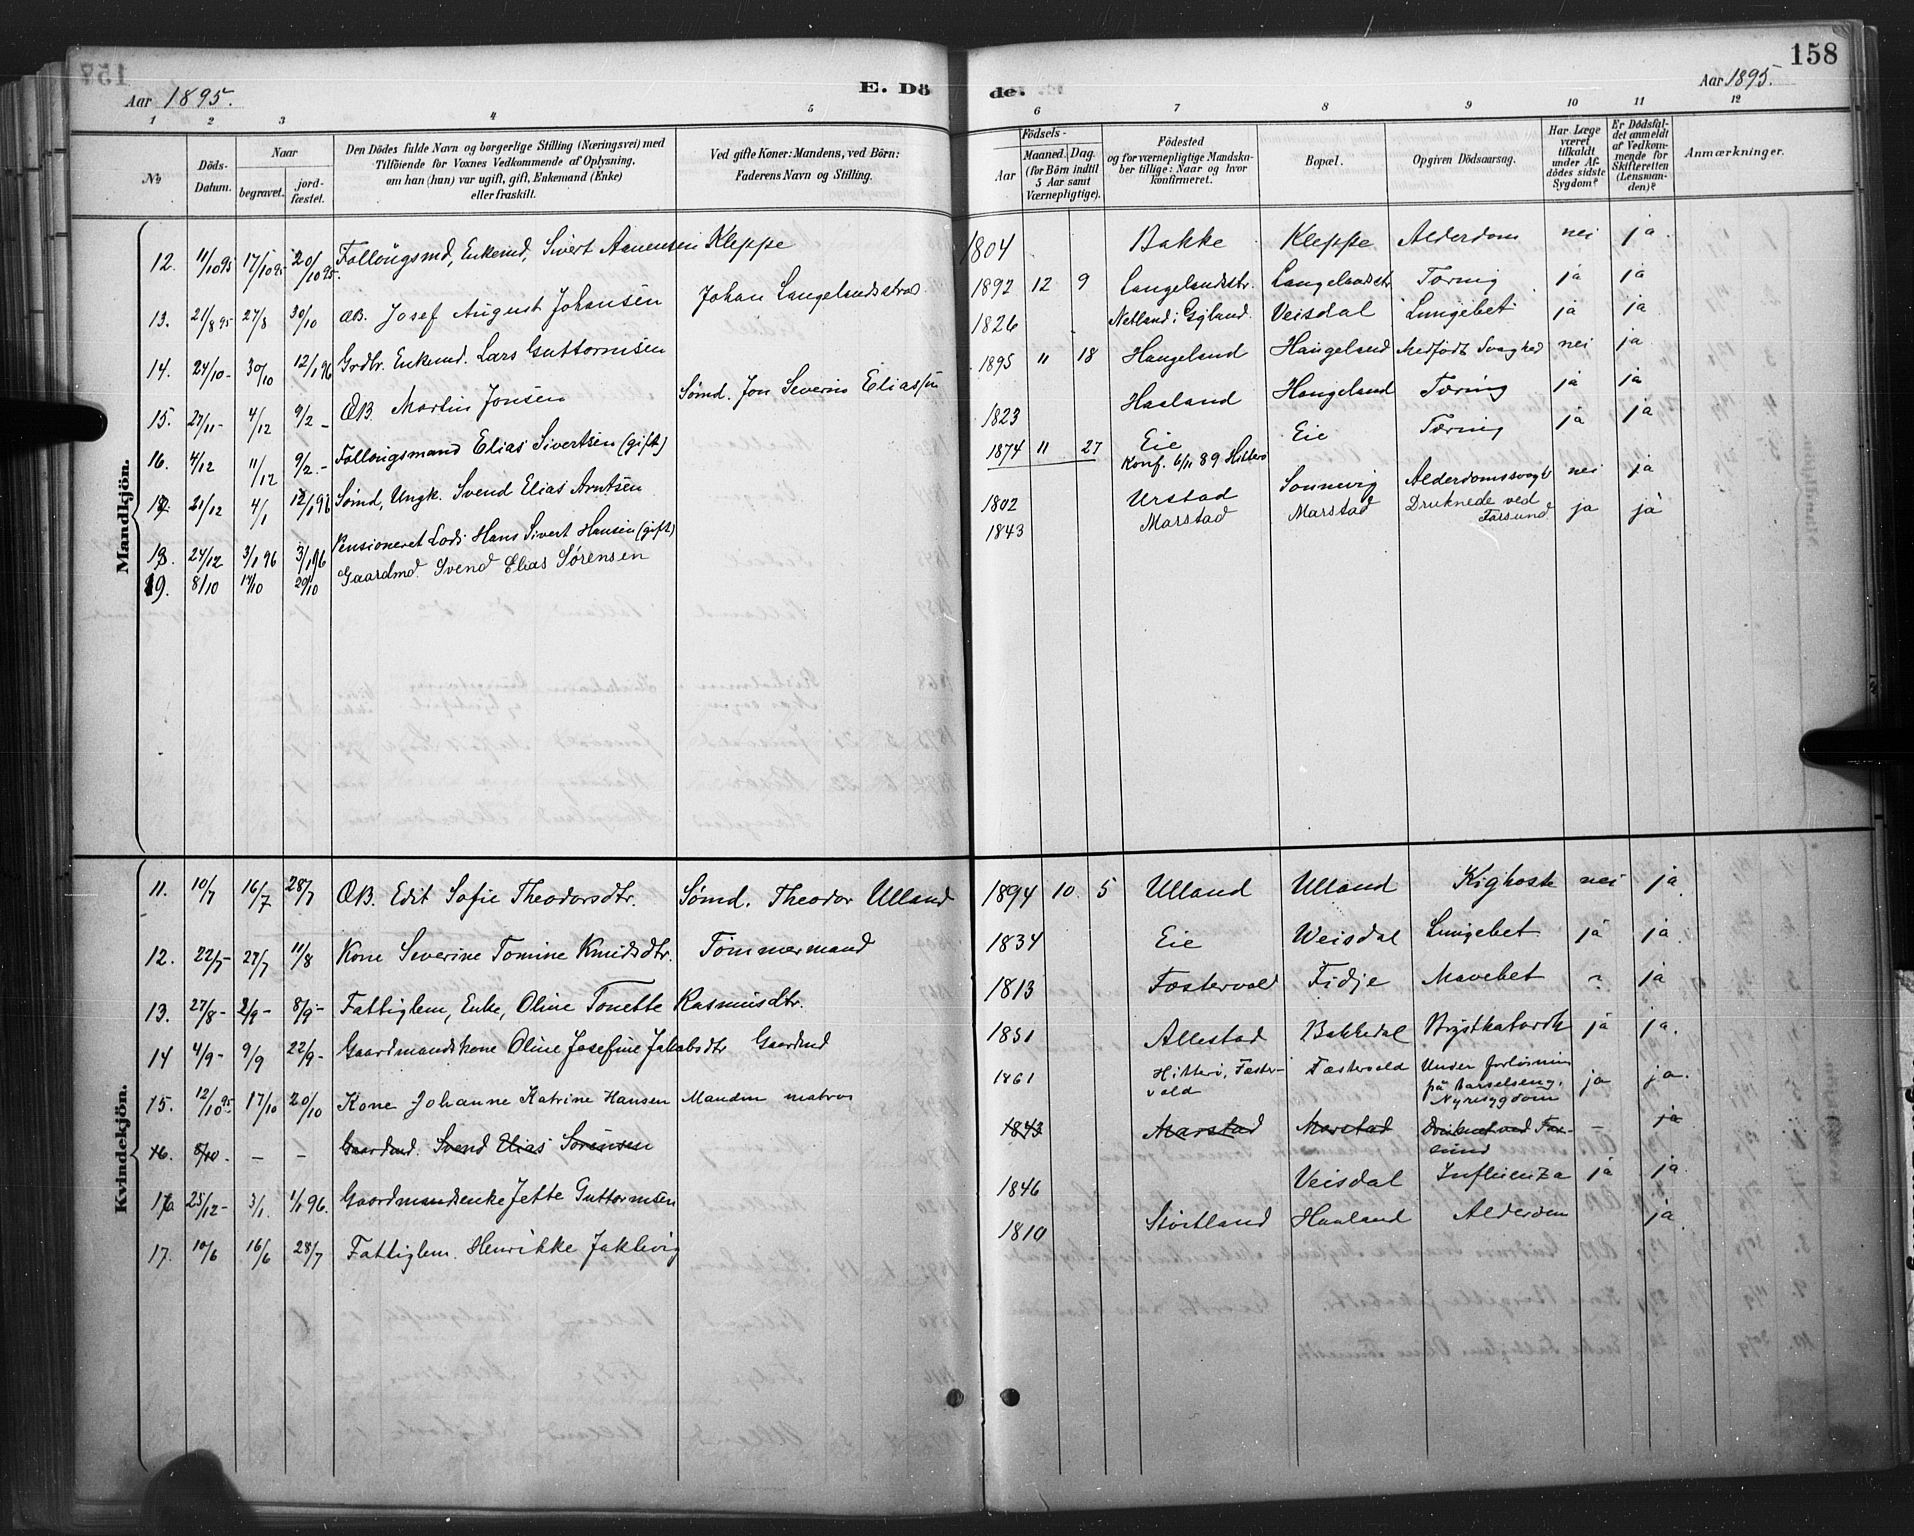 158
Aar 1895.
E. Dö
de.
Aar 1895.
1 2 3 4 5 6 7 8 9 10 11 12
№
Döds-Datum.
Naar
begravet.
jord-fæstet.
Den Dödes fulde Navn og borgerlige Stilling (Næringsvei) med
Tilföiende for Voxnes Vedkommende af Oplysning,
om han (hun) var ugift, gift, Enkemand (Enke)
eller fraskilt.
Ved gifte Koner: Mandens, ved Börn:
Faderens Navn og Stilling.
Födsels-
Aar
Maaned. Dag.
(for Börn indtil
5 Aar samt
Værnepligtige).
Födested
og for værnepligtige Mandska-
ber tillige: Naar og hvor
konfirmeret.
Bopæl.
Opgiven Dödsaarsag.
Har Læge
været
tilkaldt
under Af-
dödes sidste
Sygdom?
Er Dödsfal-
det anmeldt
af Vedkom-
mende for
Skifteretten
(Lensman-
den)?
Anmærkninger.
Mandkjön.
12. 11/10 95 17/10 95 20/10 95. Follougsmd, Enkemd, Sivert Aanensen Kleppe 1804 Bakke Kleppe Alderdom nei ja.
13. 21/8 95 27/8 30/10 ŒB. Josef August Johansen Johan Langelandsstras 1892 12 9 Langelandsstr. Langelandsstr Tæring ja ja
14. 24/10 - 30/10 12/1 96 Grdbr. Enkemd. Lars Guttormsen 1826 Netland i Gyland. Veisdal Lungebet. ja ja
15. 27/11 - 4/12 9/2 - ŒB. Martin Jonsen Sømd. Jon Severin Eliassen 1895 11 18 Haugeland Haugeland Medfödt Svaghed nei ja
16. 4/12 11/12 9/2 - Follougsmand Elias Sivertsen (gift) 1823 Haaland Haugeland Tæring ja ja
17. 21/12 4/1 12/1 96 Sømd, Ungk. Svend Elias Arntsen 1874 11 27 Eie Konf. 6/11 89 Hitterø Eie Tæring ja ja
18. 24/12 3/1 96 3/1 96 Pensioneret Lods Hans Sivert Hansen (gift) 1802 Urstad Sonnevig Alderdomssvagh. nei ja
19. 8/10 14/10 20/10 Gaardmd. Svend Elias Sørensen 1843 Marstad Marstad Druknede ved Farsund ja ja
Kvindekjön.
11. 10/7 16/7 28/7 ŒB. Edit Sofie Theodorsdtr. Sømd. Theodor Ulland 1894 10 5 Ulland Ulland Kighoste nei ja.
12. 22/7 - 27/7 11/8 Kone Severine Tomine Knudsdtr. Tømmermand 1834 Eie Weisdal Lungebet. ja ja.
13. 27/8 - 2/9 - 8/9 - Fattiglem, Enke, Oline Tonette Rasmusdtr. 1813 Fostervold Fidje Mavebet ? ja
14 4/9 - 9/9 22/9 - Gaardmandskone Oline Josefine Jakobsdtr Gaardmd 1851 Allestad Bakkedal Brystkatarrh ja ja.
15. 12/10 95 17/10 20/10 Kone Johanne Katrine Hansen Manden matros 1861 Hitterø, Fæster-vold Fæstervold Under forløsning på barselseng, Nyresygdom ja ja.
16. 8/10 - - - Gaardmd. Svend Elias Sørensen 1843 Marstad Marstad Druknet ved Far-sund - ja
16. 25/12 - 3/1. 1/1 96. Gaardmandsenke Jette Guttormsen 1846 Veisdal Influenza ja ja.
17. 10/6 16/6 28/7 Fattiglem. Henrikke Jaklevig 1810 Støitland Haaland Alderdom ja.